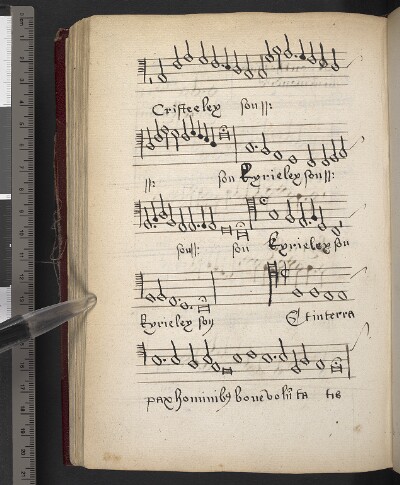 Cristeeley son :||:
:||: son kyrieley son :||:
son :||: son kyrieley son
kyrieley son Et in terra
pax hominibꝫ bone volūta tis